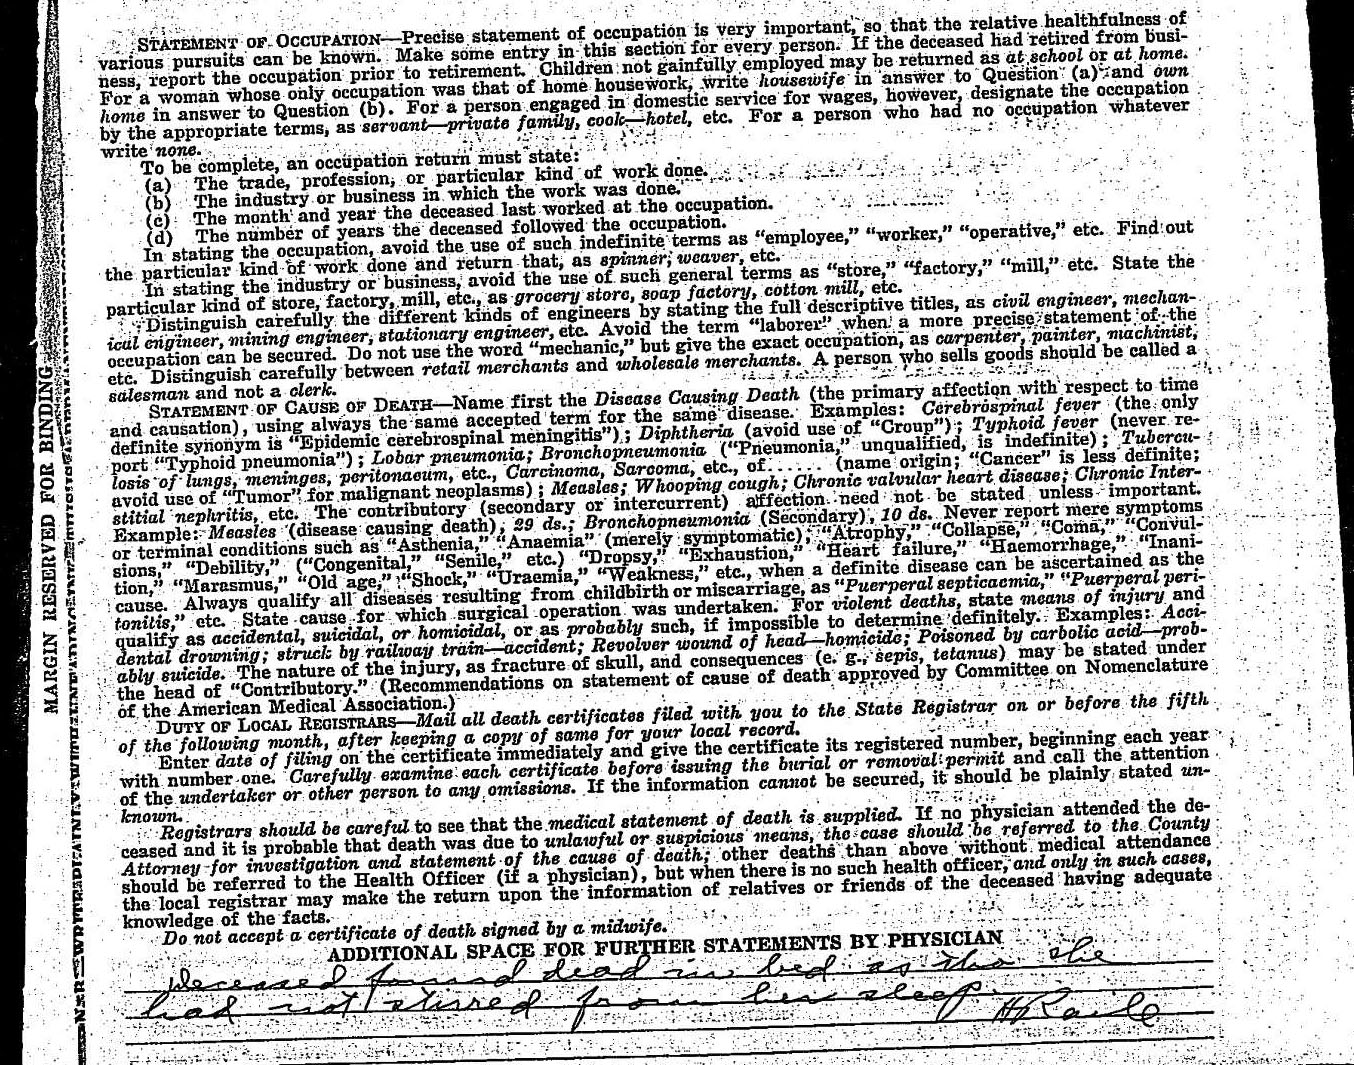 STATEMENT OF OCCUPATION—Precise statement of occupation is very important, so that the relative healthfulness of
various pursuits can be known. Make some entry in this section for every person. If the deceased had retired from busi-
ness, report the occupation prior to retirement. Children not gainfully employed may be returned as at school or at home.
For a woman whose only occupation was that of home housework, write housewife in answer to Question (a) and own
home in answer to Question (b). For a person engaged in domestic service for wages, however, designate the occupation
by the appropriate terms, as servant—private family, cook—hotel, etc. For a person who had no occupation whatever
write none.
To be complete, an occupation return must state:
(a) The trade, profession, or particular kind of work done.
(b) The industry or business in which the work was done.
(c) The month and year the deceased last worked at the occupation.
(d) The number of years the deceased followed the occupation.
In stating the occupation, avoid the use of such indefinite terms as “employee,” “worker,” “operative,” etc. Find out
the particular kind of work done and return that, as spinner, weaver, etc.
In stating the industry or business, avoid the use of such general terms as “store,” “factory,” “mill,” etc. State the
particular kind of store, factory, mill, etc., as grocery store, soap factory, cotton mill, etc.
Distinguish carefully the different kinds of engineers by stating the full descriptive titles, as civil engineer, mechan-
ical engineer, mining engineer, stationary engineer, etc. Avoid the term “laborer” when a more precise statement of the
occupation can be secured. Do not use the word “mechanic,” but give the exact occupation, as carpenter, painter, machinist,
etc. Distinguish carefully between retail merchants and wholesale merchants. A person who sells goods should be called a
salesman and not a clerk.
STATEMENT OF CAUSE OF DEATH—Name first the Disease Causing Death (the primary affection with respect to time
and causation), using always the same accepted term for the same disease. Examples: Cerebrospinal fever (the only
definite synonym is “Epidemic cerebrospinal meningitis”); Diphtheria (avoid use of “Croup”); Typhoid fever (never re-
port “Typhoid pneumonia”); Lobar pneumonia; Bronchopneumonia (“Pneumonia,” unqualified, is indefinite); Tubercu-
losis of lungs, meninges, peritonaeum, etc., Carcinoma, Sarcoma, etc., of...... (name origin; “Cancer” is less definite;
avoid use of “Tumor” for malignant neoplasms); Measles; Whooping cough; Chronic valvular heart disease; Chronic Inter-
stitial nephritis, etc. The contributory (secondary or intercurrent) affection need not be stated unless important.
Example: Measles (disease causing death), 29 ds.; Bronchopneumonia (Secondary), 10 ds. Never report mere symptoms
or terminal conditions such as “Asthenia,” “Anaemia” (merely symptomatic), “Atrophy,” “Collapse,” “Coma,” “Convul-
sions,” “Debility,” (“Congenital,” “Senile,” etc.) “Dropsy,” “Exhaustion,” “Heart failure,” “Haemorrhage,” “Inani-
tion,” “Marasmus,” “Old age,” “Shock,” “Uraemia,” “Weakness,” etc., when a definite disease can be ascertained as the
cause. Always qualify all diseases resulting from childbirth or miscarriage, as “Puerperal septicaemia,” “Puerperal peri-
tonitis,” etc. State cause for which surgical operation was undertaken. For violent deaths, state means of injury and
qualify as accidental, suicidal, or homicidal, or as probably such, if impossible to determine definitely. Examples: Acci-
dental drowning; struck by railway train—accident; Revolver wound of head—homicide; Poisoned by carbolic acid—prob-
ably suicide. The nature of the injury, as fracture of skull, and consequences (e. g., sepis, tetanus) may be stated under
the head of “Contributory.” (Recommendations on statement of cause of death approved by Committee on Nomenclature
of the American Medical Association.)
DUTY OF LOCAL REGISTRARS—Mail all death certificates filed with you to the State Registrar on or before the fifth
of the following month, after keeping a copy of same for your local record.
Enter date of filing on the certificate immediately and give the certificate its registered number, beginning each year
with number one. Carefully examine each certificate before issuing the burial or removal permit and call the attention
of the undertaker or other person to any omissions. If the information cannot be secured, it should be plainly stated un-
known.
Registrars should be careful to see that the medical statement of death is supplied. If no physician attended the de-
ceased and it is probable that death was due to unlawful or suspicious means, the case should be referred to the County
Attorney for investigation and statement of the cause of death; other deaths than above without medical attendance
should be referred to the Health Officer (if a physician), but when there is no such health officer, and only in such cases,
the local registrar may make the return upon the information of relatives or friends of the deceased having adequate
knowledge of the facts.
Do not accept a certificate of death signed by a midwife.
ADDITIONAL SPACE FOR FURTHER STATEMENTS BY PHYSICIAN
Deceased found dead in bed as tho she
had not stirred from her sleep
MARGIN RESERVED FOR BINDING